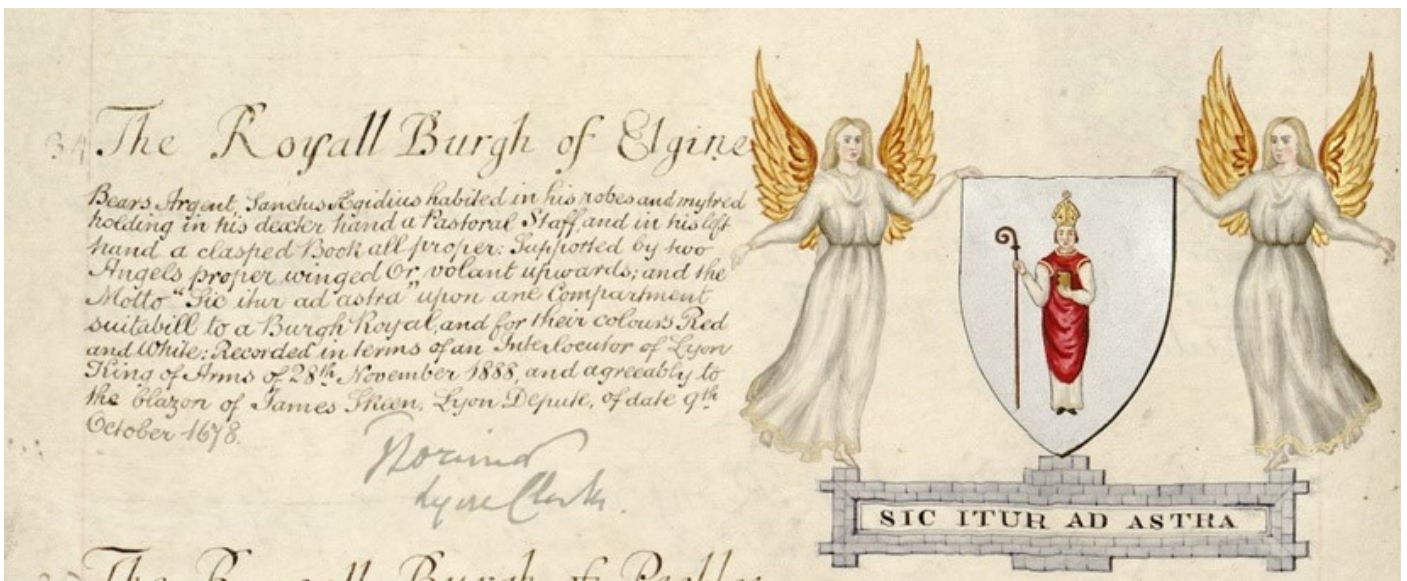 34 The Royall Burgh of Elgine
Bears Argent, Sanctus Ægidius habited in his robes and mytred
holding in his dexter hand a Pastoral Staff, and in his left
hand a clasped Book all proper: Supported by two
Angels proper winged Or, volant upwards; and the
Motto "Sic itur ad astra" upon ane Compartment
suitabill to a Burgh Royal, and for their colours Red
and White: Recorded in terms of an Interlocutor of Lyon
King of Arms of 28th November 1888, and agreeably to
the blazon of James Skeen, Lyon Depute, of date 9th
October 1678.
Lyon Clerk.
SIC ITUR AD ASTRA
The Royall Burgh of